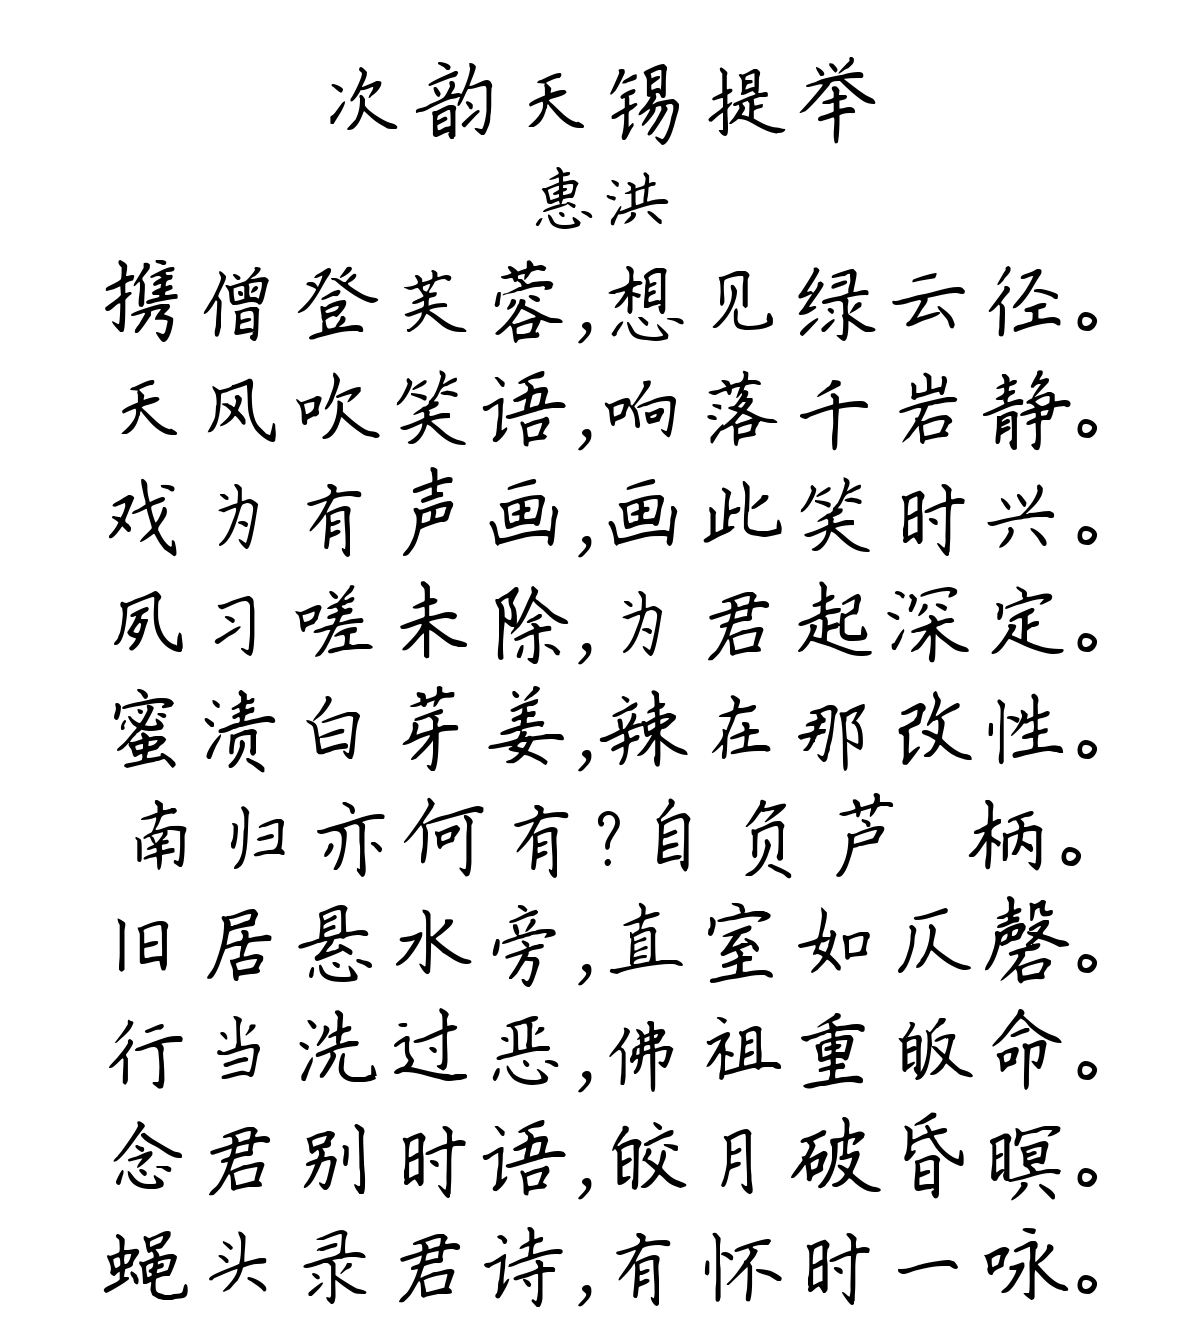 次韵天锡提举
惠洪
携僧登芙蓉,想见绿云径。
天风吹笑语,响落千岩静。
戏为有声画,画此笑时兴。
夙习嗟未除,为君起深定。
蜜渍白芽姜,辣在那改性。
南归亦何有?自负芦 柄。
旧居悬水旁,直室如仄磬。
行当洗过恶,佛祖重皈命。
念君别时语,皎月破昏暝。
蝇头录君诗,有怀时一咏。